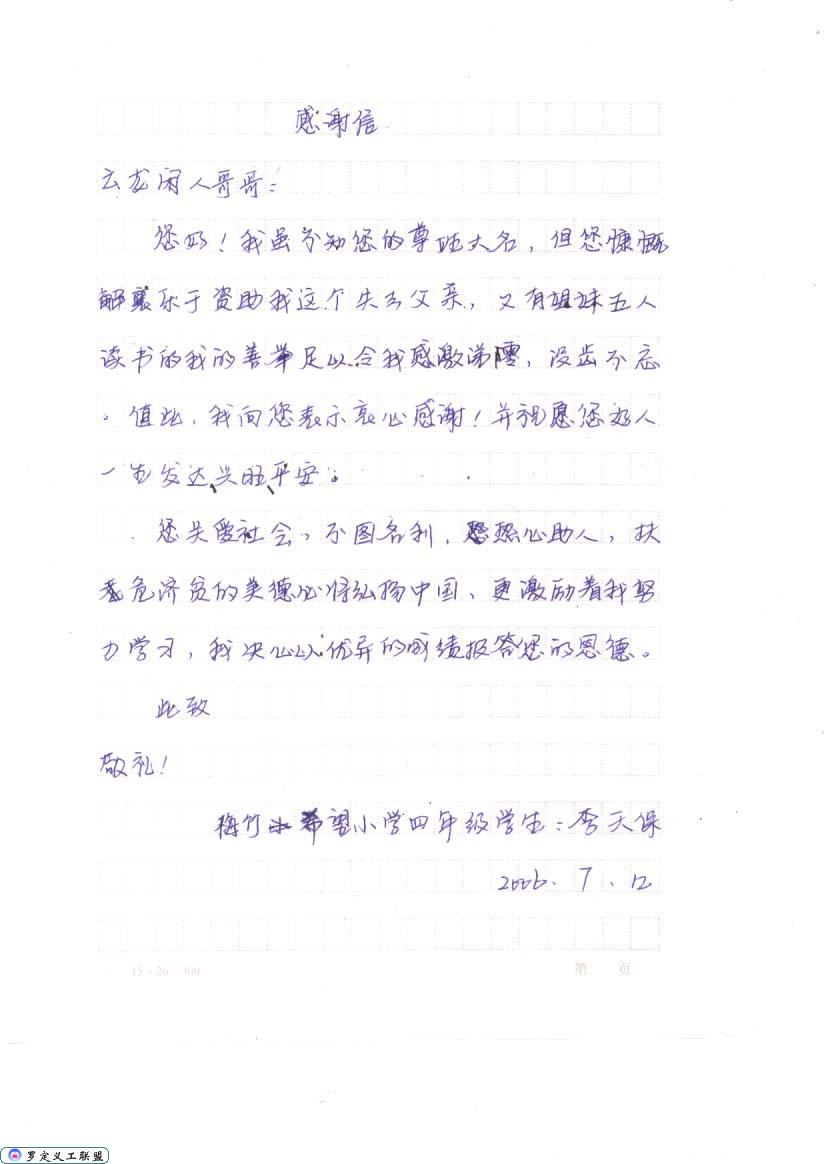 感谢信
云龙闲人哥哥：
您好！我虽不知您的尊姓大名，但您慷慨
解襄乐于资助我这个失去父亲，又有姐妹五人
读书的我的善举足以令我感激涕零，没齿不忘
。值此，我向您表示衷心感谢！并祝愿您好人
一生发达兴旺平安。
您关爱社会，不图名利，热心助人，扶
危济贫的美德必将弘扬中国、更激励着我努
力学习，我决心以优异的成绩报答您的恩德。
此致
敬礼！
梅竹希望小学四年级学生：李天保
2006.7.12
15×20=300 第 页
罗定义工联盟